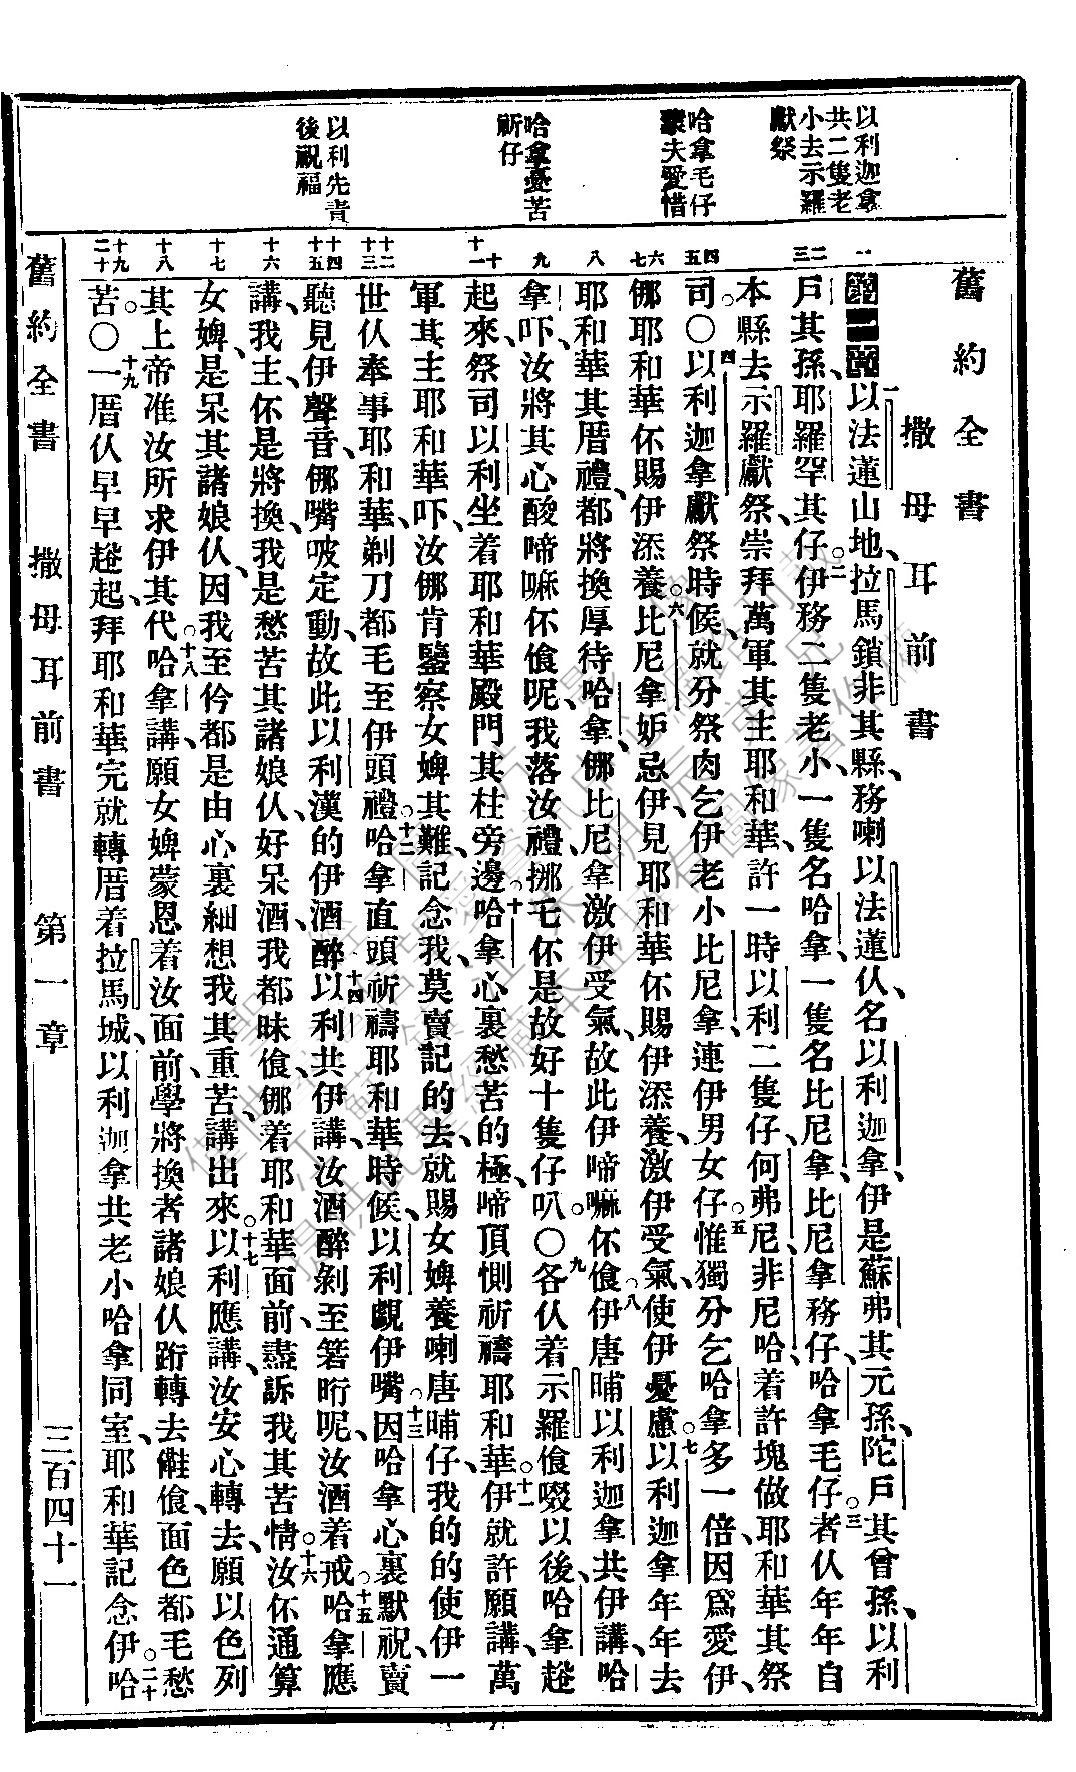 以利迦拿
共二隻老
小去示羅
獻祭
哈拿毛仔
蒙夫愛惜
哈拿憂苦
祈仔
以利先責
後祝福
舊約全書
撒母耳前書
第一章 一以法蓮山地、拉馬鎖非其縣、務喇以法蓮仈、名以利迦拿、伊是蘇弗其元孫、陀戶其曾孫、以利
戶其孫、耶羅罕其仔。二伊務二隻老小、一隻名哈拿、一隻名比尼拿、比尼拿務仔、哈拿毛仔。三者仈年年自
本縣去示羅獻祭、崇拜萬軍其主耶和華、許一時以利二隻仔、何弗尼、非尼哈、着許塊做耶和華其祭
司。〇四以利迦拿獻祭時候、就分祭肉乞伊老小比尼拿、連伊男女仔。五惟獨分乞哈拿多一倍、因爲愛伊、
㑚耶和華伓賜伊添養。六比尼拿妒忌伊、見耶和華伓賜伊添養、激伊受氣、使伊憂慮。七以利迦拿年年去
耶和華其厝禮、都將換厚待哈拿、㑚比尼拿激伊受氣、故此伊啼嘛伓飡。八伊唐晡以利迦拿共伊講、哈
拿吓、汝將其心酸啼嘛伓飡呢、我落汝禮挪毛伓是故好十隻仔叭。〇九各仈着示羅飡啜以後、哈拿𨑨
起來、祭司以利坐着耶和華殿門其柱旁邊。十哈拿心裏愁苦的極、啼頂惻祈禱耶和華。十一伊就許願講、萬
軍其主耶和華吓、汝㑚肯鑒察女婢其難、記念我、莫賣記的去、就賜女婢養喇唐晡仔、我的的使伊一
世仈奉事耶和華、剃刀都毛至伊頭禮。十二哈拿直頭祈禱耶和華時候、以利覷伊嘴。十三因哈拿心裏默祝、賣
聽見伊聲音、㑚嘴吱定動、故此以利漢的伊酒醉。十四以利共伊講、汝酒醉剝至箬暏呢、汝酒着戒。十五哈拿應
講、我主、伓是將換、我是愁苦其諸娘仈、好呆酒我都昧飡、㑚着耶和華面前、盡訴我其苦情。十六汝伓通算
女婢是呆其諸娘仈、因我至伶都是由心裏細想我其重苦、講出來。十七以利應講、汝安心轉去、願以色列
其上帝准汝所求伊其代。十八哈拿講、願女婢蒙恩着汝面前、學將換者諸娘仈跻轉去、儺飡、面色都毛愁
苦。〇十九一厝仈早早𨑨起、拜耶和華完就轉厝着拉馬城、以利迦拿共老小哈拿同室、耶和華記念伊。二十哈
舊約全書 撒母耳前書 第一章 三百四十一